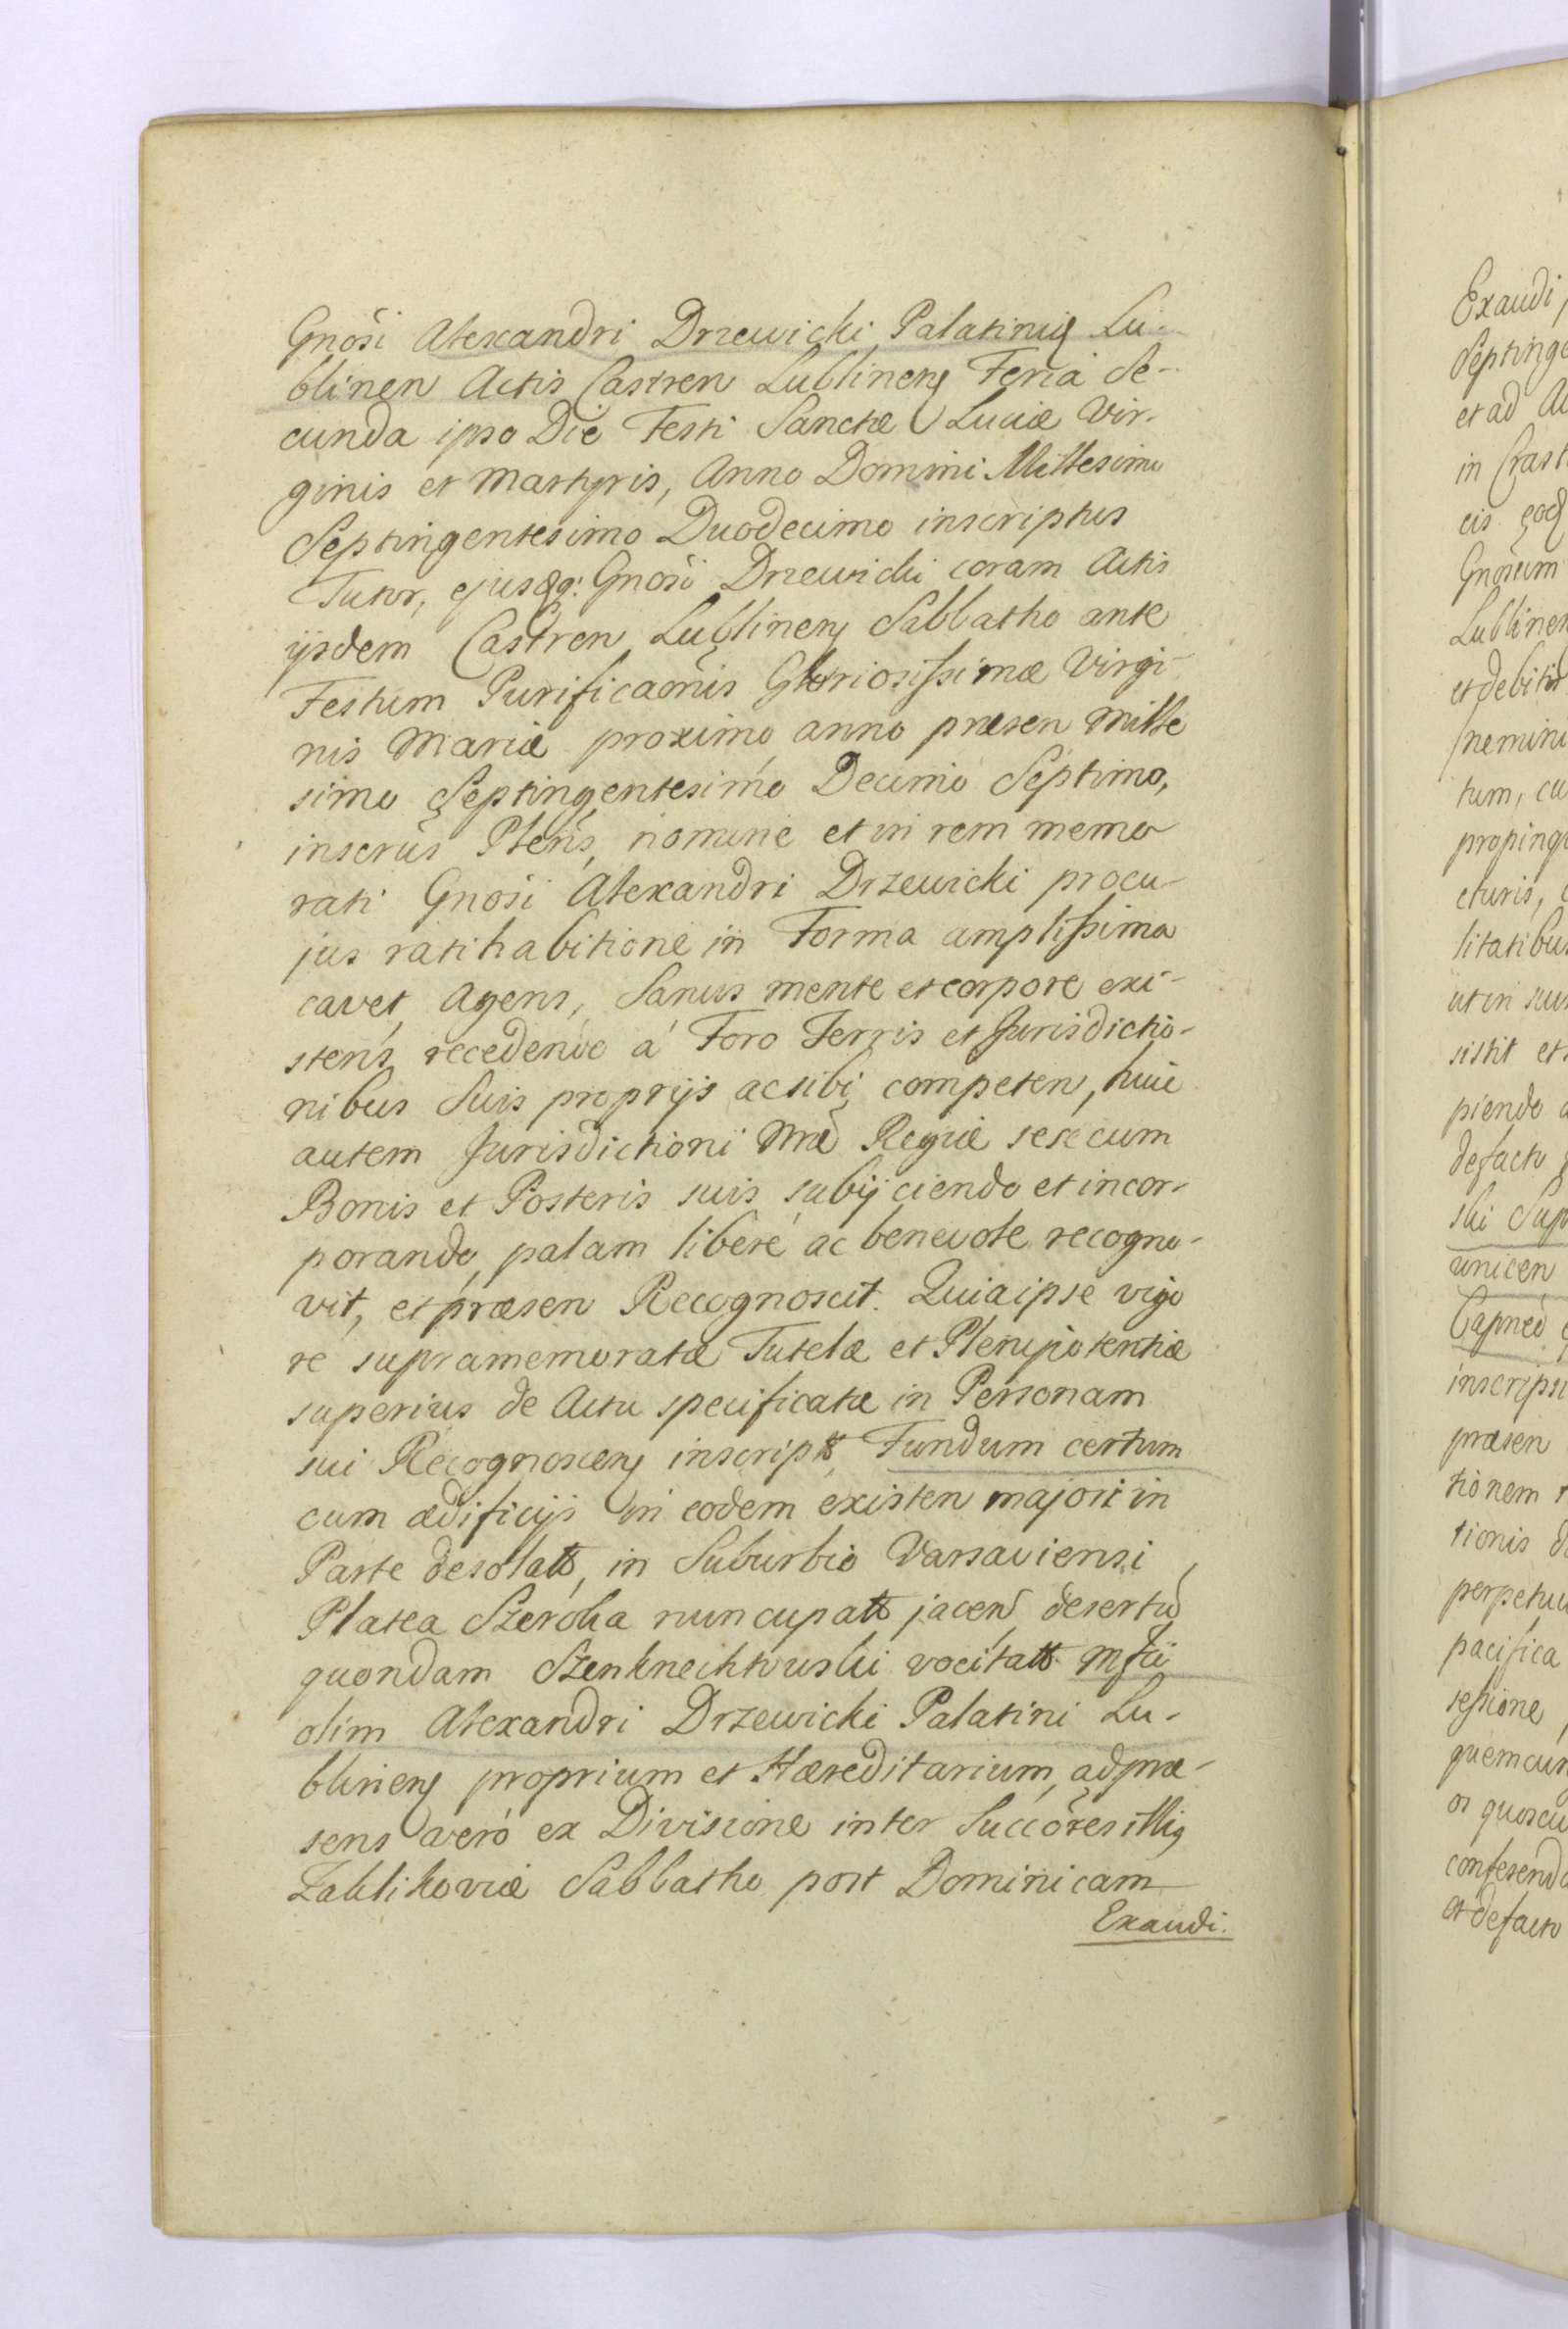 Gnosi Alexandri Drzewicki Palatinis Lu-
blinen Actis Castren Lublinens Feria Se-
cunda ipso Die Festi Sanctæ Luciæ Vir-
ginis et Martyris, Anno Domini Millesimo
Septingentesimo Duodecimo inscriptus
Tutor, ejusdq: Gnosi Drzewicki coram Actis
ijsdem Castren Lublinens Sabbatho ante
Festum Purificaõnis Gloriosissimæ Virgi-
nis Mariæ proximo anno præsen Mille
simo Septingentesimo Decimo Septimo,
inscrűs Plenś, nomine et in rem memo
rati Gnosi Alexandri Drzewicki pro cu-
jus ratihabitione in Forma amplissima
cavet, Agens, Sanus mente et corpore exi-
stens, recedendo á Foro Terris et Jurisdictio-
nibus Suis proprijs ac sibi competen, huic
autem Jurisdictioni Regiæ sese cum
Bonis et Posteris suis, subijciendo et incor-
porando, palam liberé ac benevole recogno-
vit, et præsen Recognoscit. Quia ipse vigo
re supramemoratæ Tutelæ et Plenipotentiæ
superius de Actu specificatæ in Personam
sui Recognoscens inscript, Fundum certum
cum ædificijs in eodem existen majori in
Parte desolatt, in Suburbio Varsaviensi
Platea Szeroka nuncupatt jacen, desertũ
quondam Szenknechtowski vocitatt Mfci
olim Alexandri Drzewicki Palatini Lu-
blinens proprium et Hæreditarium, ad præ-
sens veró ex Divisione inter Succõres illis
Zaklikoviæ Sabbatho post Dominicam
Exaudi.
Exaudi,
Septinge
et ad A
in Crast
cis
Gnosum
Lublinen
et debitir
nemini
tum, cu
propinqu
cturis,
litatibus
ut in suis
sistit et
piendo a
defacto
ski Sup
unicen
Capneõ
inscripsi
præsen
tionem
tionis d
perpetuu
pacifica
sessione,
quemcun
os quoscu
conferendo
et defacto